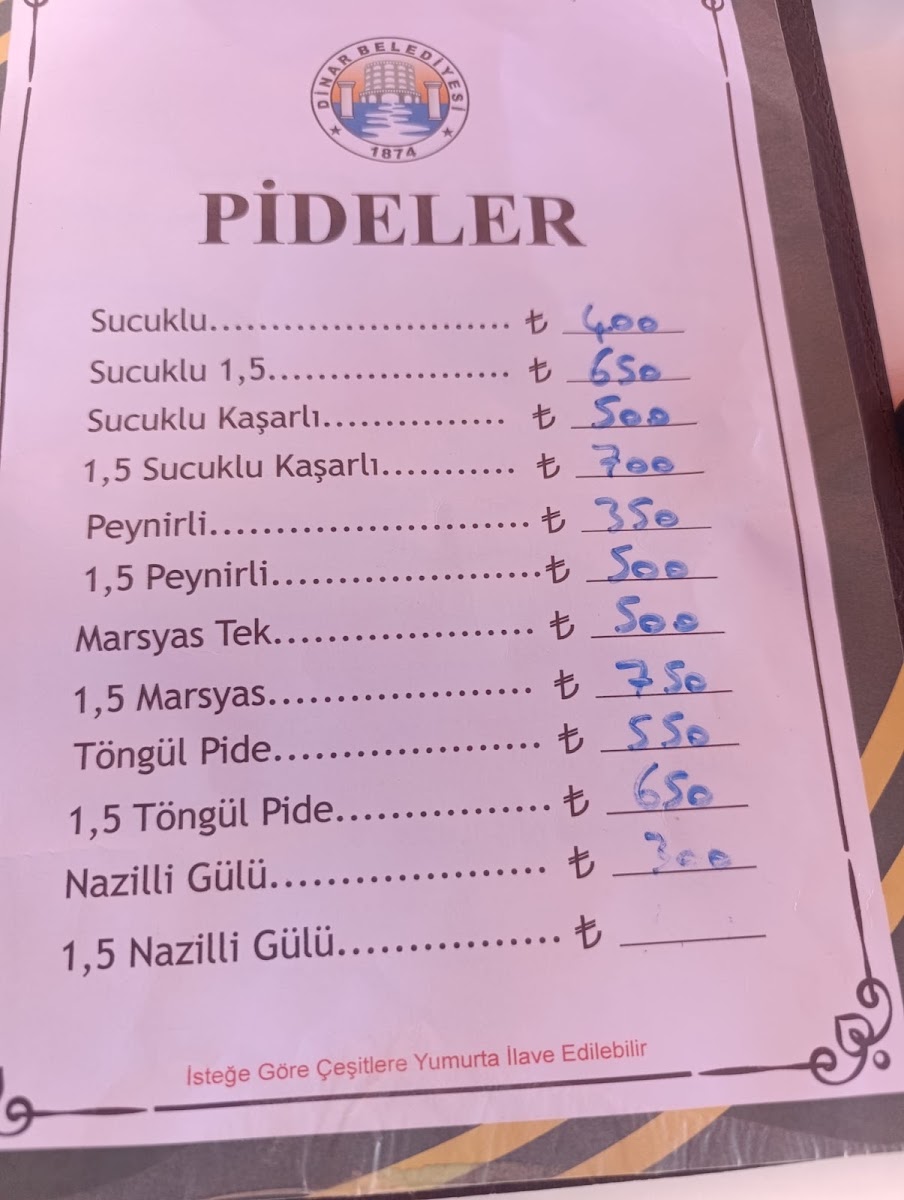 DİNAR BELEDİYESİ
1874
PİDELER
Sucuklu........................ ₺ 400
Sucuklu 1,5.................... ₺ 650
Sucuklu Kaşarlı............... ₺ 500
1,5 Sucuklu Kaşarlı........... ₺ 700
Peynirli.......................... ₺ 350
1,5 Peynirli......................₺ 500
Marsyas Tek..................... ₺ 500
1,5 Marsyas...................... ₺ 750
Töngül Pide...................... ₺ 550
1,5 Töngül Pide................ ₺ 650
Nazilli Gülü....................... ₺ 300
1,5 Nazilli Gülü................ ₺
İsteğe Göre Çeşitlere Yumurta İlave Edilebilir